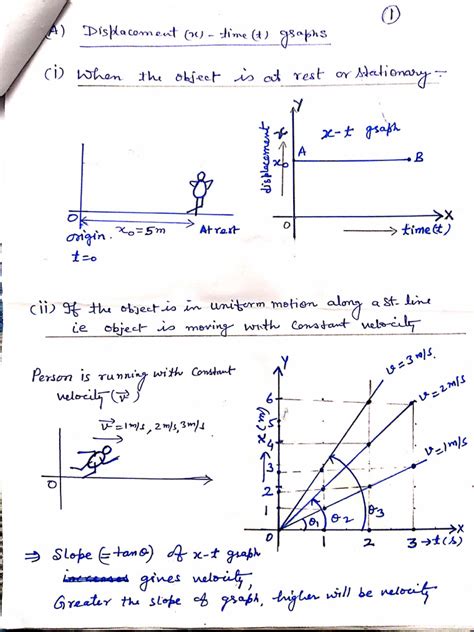 ①
A) Displacement (x) - time (t) graphs
(i) When the object is at rest or stationary :-
Y
x-t graph
displacement
x₀
A
B
O
X
→ time(t)
O
origin.
x₀=5m
At rest
t=0
(ii) If the object is in uniform motion along a st. line
ie object is moving with constant velocity
Person is running with constant
velocity (v⃗)
v⃗=1m/s, 2m/s, 3m/s
O
Y
v=3m/s.
v=2m/s.
v=1m/s
→ x(m)
6
5
4
3
2
1
O
θ₁
θ₂
θ₃
1
2
3
→t(s)
X
⇒ Slope (=tanθ) of x-t graph
gives velocity,
Greater the slope of graph, higher will be velocity